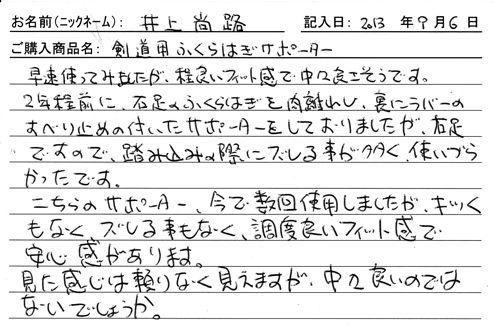 お名前(ニックネーム): 井上尚路 記入日: 2013 年9月6日
ご購入商品名: 剣道用ふくらはぎサポーター
早速使ってみましたが、程良いフィット感で中々良さそうです。
2年程前に、右足のふくらはぎを肉離れし、裏にラバーの
すべり止めの付いたサポーターをしておりましたが、右足
ですので、踏み込みの際にズレる事が多く、使いづら
かったです。
こちらのサポーター、今まで数回使用しましたが、キツく
もなく、ズレる事もなく、調度良いフィット感で
安心感があります。
見た感じは頼りなく見えますが、中々良いのでは
ないでしょうか。